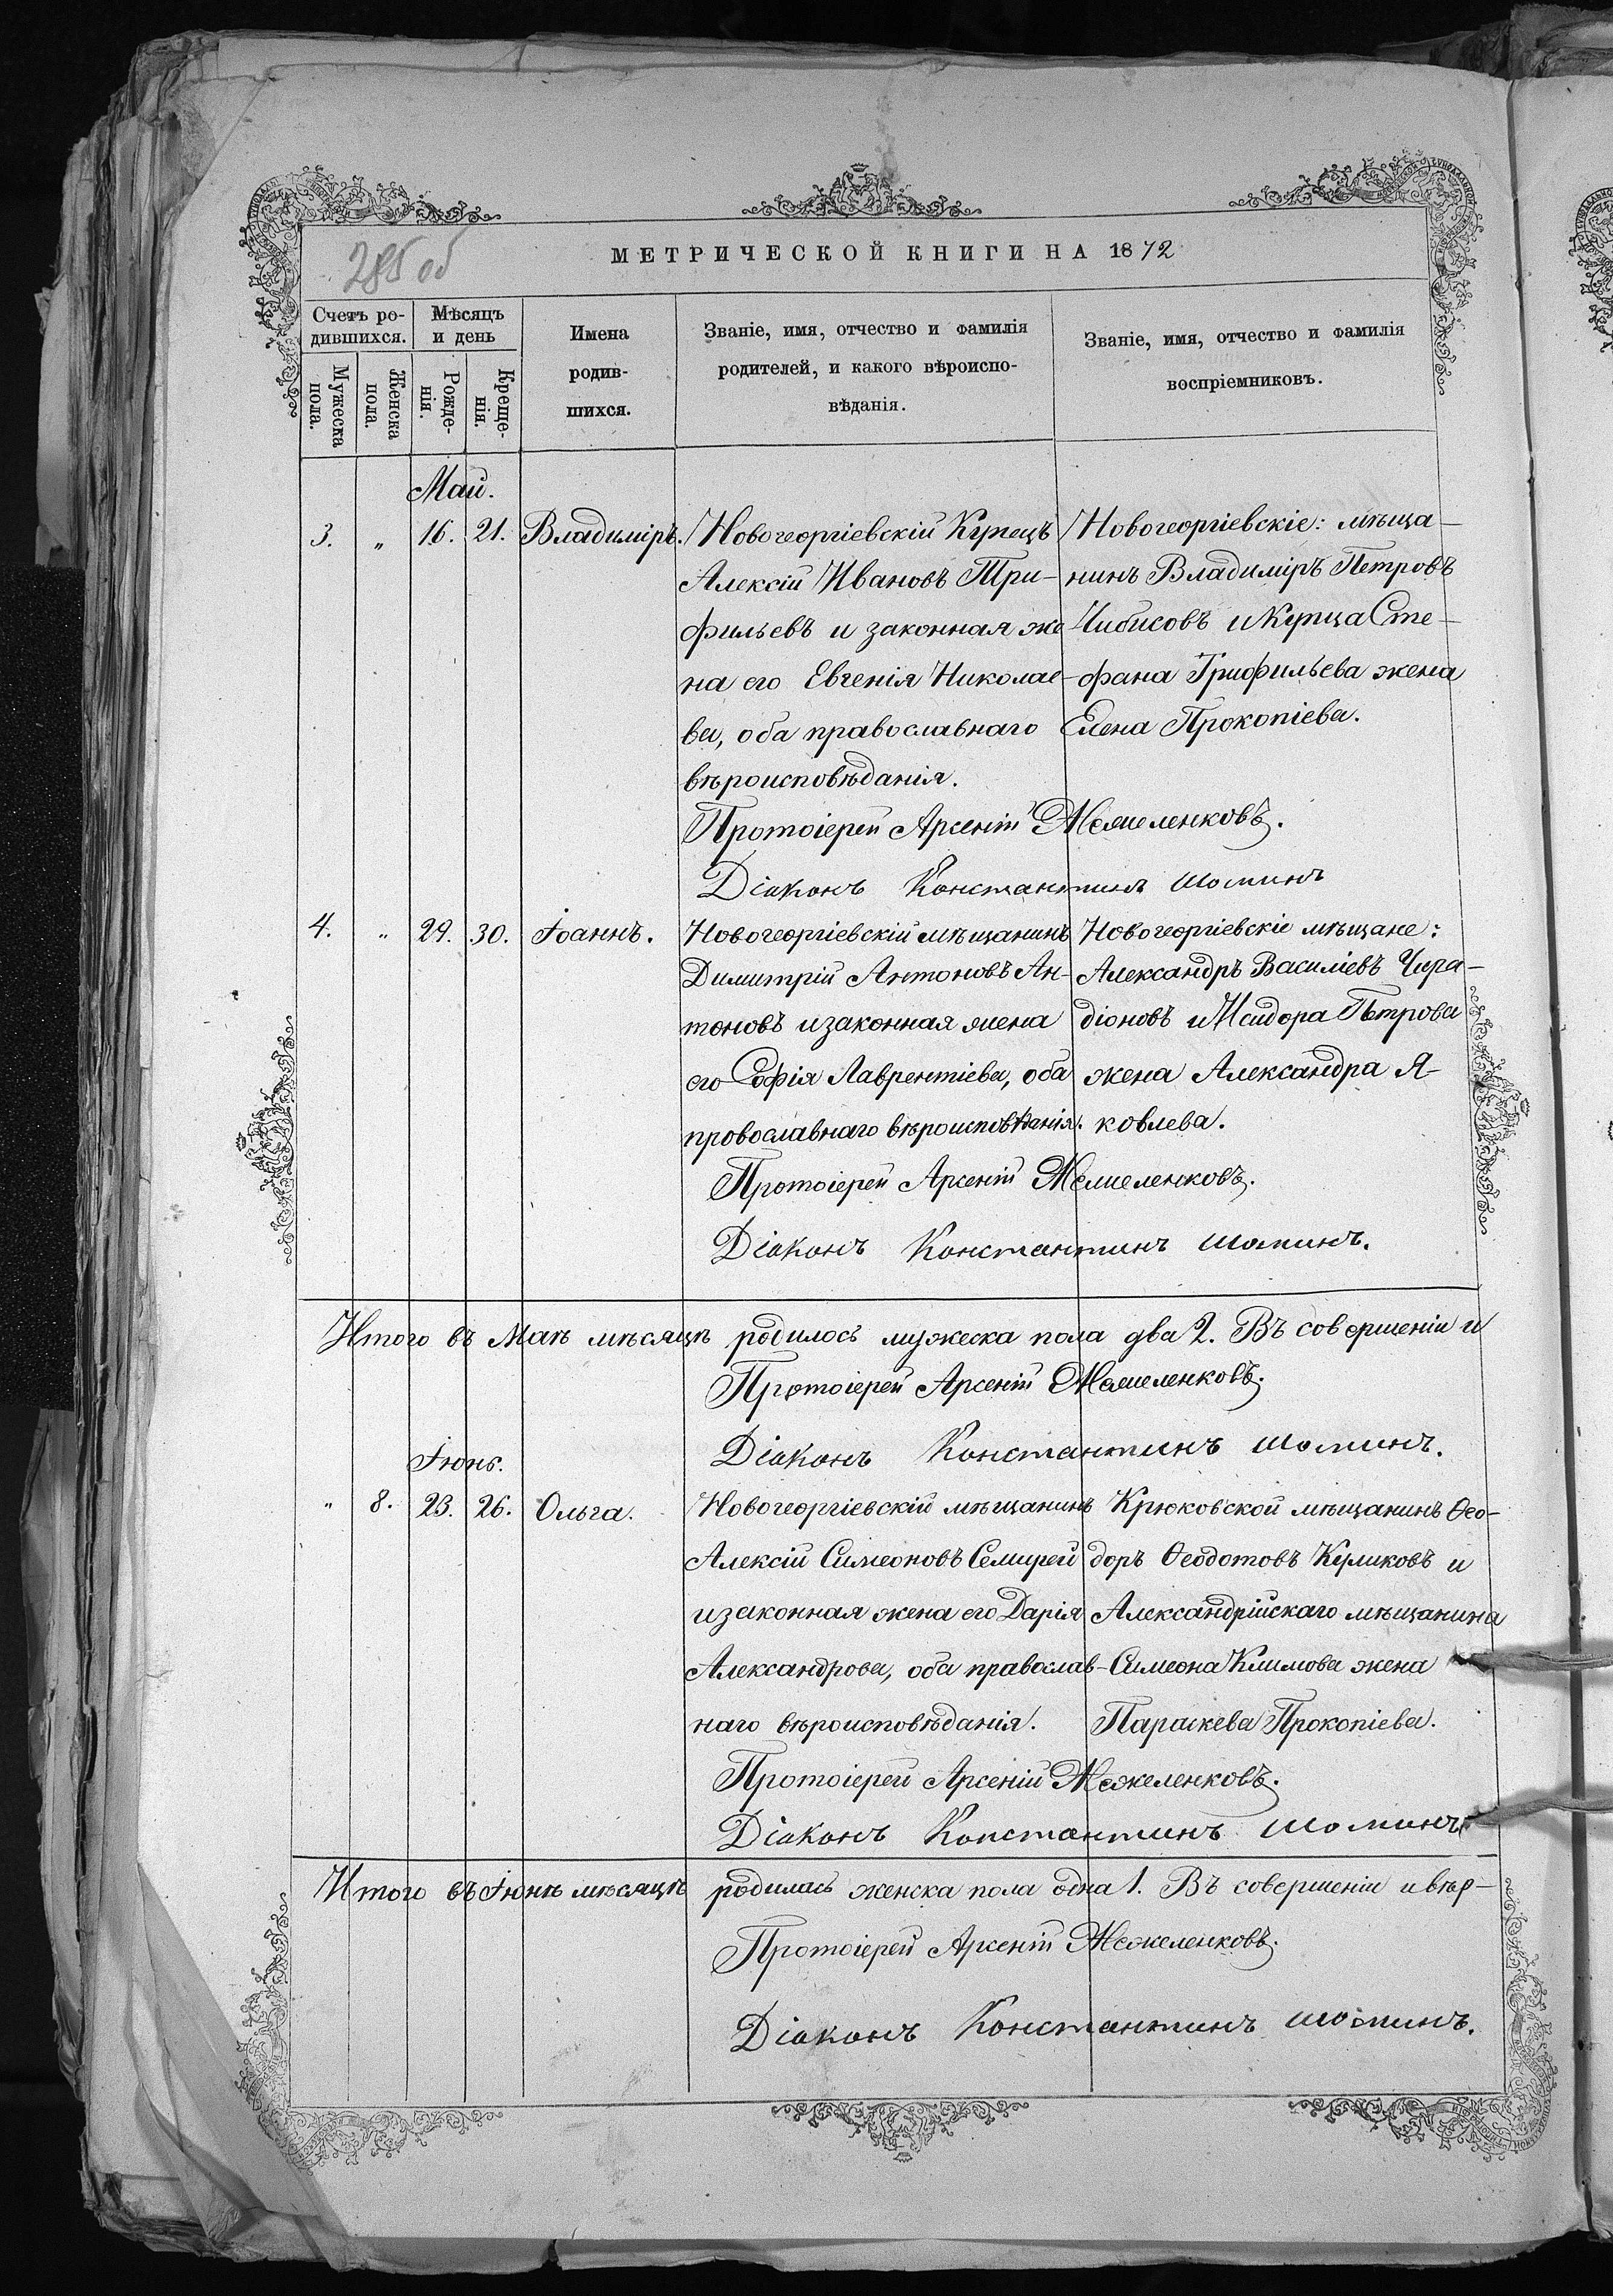 285 об
МЕТРИЧЕСКОЙ КНИГИ НА 1872
Счетъ ро-
дившихся.
Мѣсяцъ
и день
Мужеска
пола.
Женска
пола.
Рожде-
нія.
Креще-
нія.
Имена
родив-
шихся.
Званіе, имя, отчество и фамилія
родителей, и какого вѣроиспо-
вѣданія.
Званіе, имя, отчество и фамилія
воспріемниковъ.
Май.
3. „ 16. 21. Владиміръ.
Новогеоргіевскій Купецъ
Алексій Ивановъ Три-
фильевъ и законная же
на его Евгенія Николае-
ва, оба православнаго
вѣроисповѣданія.
Новогеоргіевскіе: мѣща-
нинъ Владиміръ Петровъ
Чибисовъ и Купца Сте-
фана Трифильева жена
Елена Прокопіева.
Протоіерей Арсеній
Діаконъ Константинъ Шоминъ
4. „ 29. 30. Іоаннъ.
Новогеоргіевскій мѣщанинъ
Димитрій Антоновъ Ан-
тоновъ и законная жена
его Софія Лаврентіева, оба
провославнаго вѣроисповѣданія.
Новогеоргіевскіе мѣщане:
Александръ Василіевъ
діоновъ и Исидора Петрова
жена Александра Я-
ковлева.
Протоіерей Арсеній
Діаконъ Константинъ Шоминъ.
Итого въ Маѣ мѣсяцѣ родилось мужеска пола два 2. Въ совершеніи и
Протоіерей Арсеній
Діаконъ Константинъ Шоминъ.
Іюнь.
„ 8. 23. 26. Ольга.
Новогеоргіевскій мѣщанинъ
Алексій Симеоновъ Семирей
и законная жена его Дарія
Александрова, оба православ-
наго вѣроисповѣданія.
Крюковской мѣщанинъ Ѳео-
доръ Ѳеодотовъ Куликовъ и
Александрійскаго мѣщанина
Симеона Климова жена
Параскева Прокопіева.
Протоіерей Арсеній
Діаконъ Константинъ Шоминъ
Итого въ Іюнѣ мѣсяцѣ родилась женска пола одна 1. Въ совершеніи и вѣр-
Протоіерей Арсеній
Діаконъ Константинъ Шоминъ.